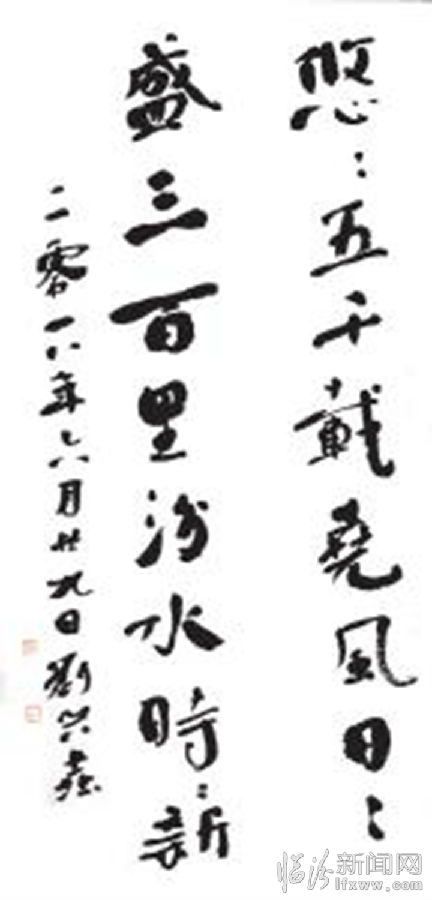 悠:五千載堯風日:
盛三百里汾水時:新
二零一八年六月廿九日劉
临汾新闻网
lfxww.com